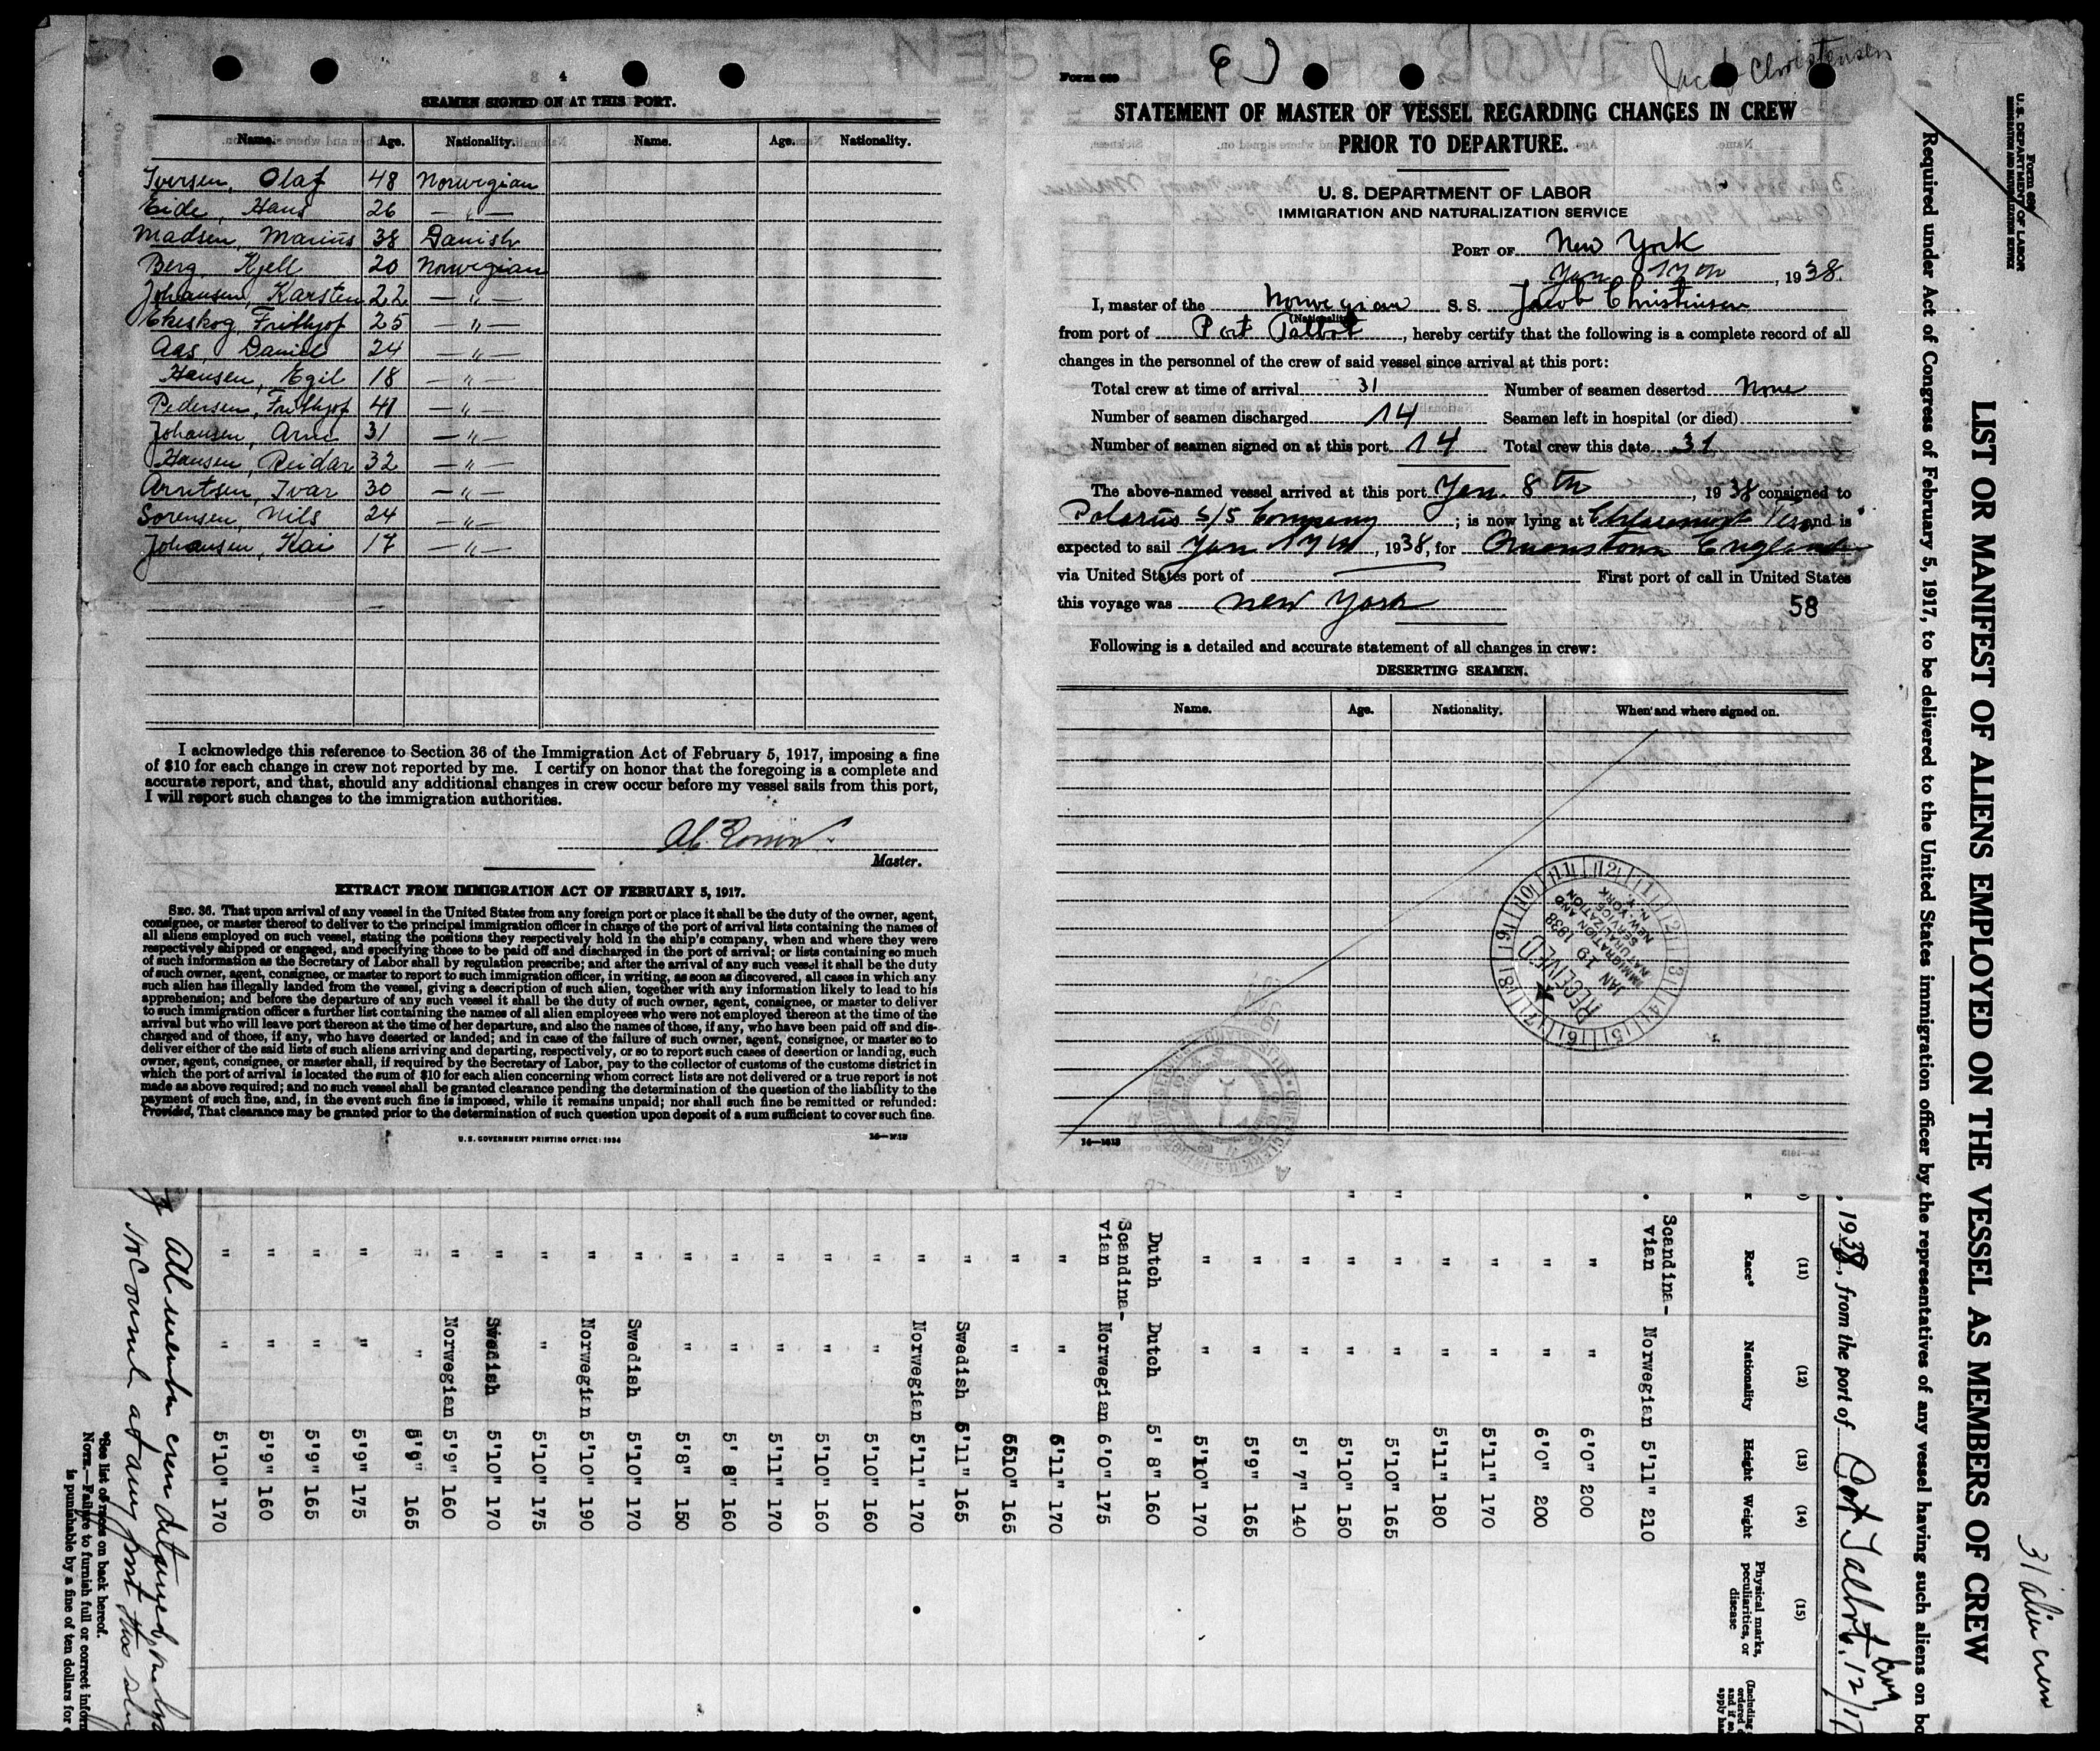 4
SEAMEN SIGNED ON AT THIS PORT.
Name. Age. Nationality. Name. Age. Nationality.
Iversen, Olaf 48 Norwegian
Eide, Hans 26 — " —
Madsen, Marius 38 Danish
Berg, Kjell 20 Norwegian
Johansen, Karsten 22 — " —
Ekeskog, Frithjof 25 — " —
Aas, Daniel 24 — " —
Hansen, Egil 18 — " —
Pedersen, Frithjof 41 — " —
Johansen, Arne 31 — " —
Hansen, Reidar 32 — " —
Arntsen, Ivar 30 — " —
Sorensen, Nils 24 — " —
Johansen, Kai 17 — " —
I acknowledge this reference to Section 36 of the Immigration Act of February 5, 1917, imposing a fine
of $10 for each change in crew not reported by me. I certify on honor that the foregoing is a complete and
accurate report, and that, should any additional changes in crew occur before my vessel sails from this port,
I will report such changes to the immigration authorities.
Master.
EXTRACT FROM IMMIGRATION ACT OF FEBRUARY 5, 1917.
SEC. 36. That upon arrival of any vessel in the United States from any foreign port or place it shall be the duty of the owner, agent,
consignee, or master thereof to deliver to the principal immigration officer in charge of the port of arrival lists containing the names of
all aliens employed on such vessel, stating the positions they respectively hold in the ship's company, when and where they were
respectively shipped or engaged, and specifying those to be paid off and discharged in the port of arrival; or lists containing so much
of such information as the Secretary of Labor shall by regulation prescribe; and after the arrival of any such vessel it shall be the duty
of such owner, agent, consignee, or master to report to such immigration officer, in writing, as soon as discovered, all cases in which any
such alien has illegally landed from the vessel, giving a description of such alien, together with any information likely to lead to his
apprehension; and before the departure of any such vessel it shall be the duty of such owner, agent, consignee, or master to deliver
to such immigration officer a further list containing the names of all alien employees who were not employed thereon at the time of the
arrival but who will leave port thereon at the time of her departure, and also the names of those, if any, who have been paid off and dis-
charged and of those, if any, who have deserted or landed; and in case of the failure of such owner, agent, consignee, or master so to
deliver either of the said lists of such aliens arriving and departing, respectively, or so to report such cases of desertion or landing, such
owner, agent, consignee, or master shall, if required by the Secretary of Labor, pay to the collector of customs of the customs district in
which the port of arrival is located the sum of $10 for each alien concerning whom correct lists are not delivered or a true report is not
made as above required; and no such vessel shall be granted clearance pending the determination of the question of the liability to the
payment of such fine, and, in the event such fine is imposed, while it remains unpaid; nor shall such fine be remitted or refunded:
Provided, That clearance may be granted prior to the determination of such question upon deposit of a sum sufficient to cover such fine.
U. S. GOVERNMENT PRINTING OFFICE: 1934
Form 689
Jacob Christensen
STATEMENT OF MASTER OF VESSEL REGARDING CHANGES IN CREW
PRIOR TO DEPARTURE.
U. S. DEPARTMENT OF LABOR
IMMIGRATION AND NATURALIZATION SERVICE
PORT OF New York
Jan 17th, 1938.
I, master of the Norwegian S. S. Jacob Christensen
(Nationality)
from port of Port Talbot, hereby certify that the following is a complete record of all
changes in the personnel of the crew of said vessel since arrival at this port:
Total crew at time of arrival 31 Number of seamen deserted None
Number of seamen discharged 14 Seamen left in hospital (or died)
Number of seamen signed on at this port 14 Total crew this date 31
The above-named vessel arrived at this port Jan. 8th, 1938 consigned to
Polarus S/S Company; is now lying at Claremont Ter and is
expected to sail Jan 17th, 1938, for Queenstown England
via United States port of First port of call in United States
this voyage was New York 58
Following is a detailed and accurate statement of all changes in crew:
DESERTING SEAMEN.
Name. Age. Nationality. When and where signed on.
RECEIVED
JAN 19 1938
IMMIGRATION AND
NATURALIZATION
SERVICE
NEW YORK
N. Y.
14—1613
U. S. DEPARTMENT OF LABOR
IMMIGRATION AND NATURALIZATION SERVICE
LIST OR MANIFEST OF ALIENS EMPLOYED ON THE VESSEL AS MEMBERS OF CREW
31 alien crew
Required under Act of Congress of February 5, 1917, to be delivered to the United States immigration officer by the representatives of any vessel having such aliens on bo
, 1938, from the port of Port Talbot, 12/17
(11) (12) (13) (14) (15)
Race* Nationality Height Weight Physical marks, peculiarities, or disease
Scandina-
vian Norwegian 5'11" 210
" " 6'0" 200
" " 6'0" 200
" " 5'11" 170
" " 5'11" 180
" " 5'10" 165
" " 5'10" 150
" " 5' 7" 140
" " 5'9" 165
" " 5'10" 170
Dutch Dutch 5' 8" 160
Scandina-
vian Norwegian 6'0" 175
" " 5'11" 170
" " 5510" 165
" Swedish 5'11" 165
" Norwegian 5'11" 170
" " 5'10" 160
" " 5'10" 160
" " 5'11" 170
" " 5' 8" 160
" " 5'8" 150
" Swedish 5'10" 170
" Norwegian 5'10" 190
" " 5'10" 175
" Swedish 5'10" 170
" Norwegian 5'9" 160
" " 5'9" 165
" " 5'9" 175
" " 5'9" 165
" " 5'9" 160
" " 5'10" 170
*See list of races on back hereof.
NOTE.—Failure to furnish full or correct inform
is punishable by a fine of ten dollars for